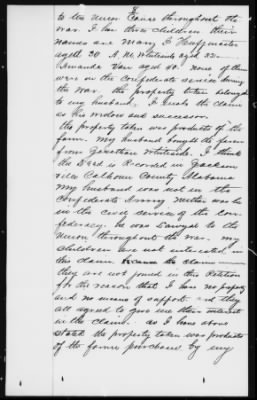 to the Union Cause throughout the
war. I have three children their
names are Mary E Huffmister
aged 50 A. M. Whiteside aged 42.
Amanda Vau aged 40. none of them
were in the Confederate service during
the war. the property taken belonged
to my husband. I make the claim
as his widow and successor.
the property taken was products of the
farm. My husband bought the farm
from Whiteside. I think
the Deed is Recorded in Jackson
ville Calhoun County Alabama
My husband was not in the
Confederate Army neither was he
in the civil service of the Con
federacy. he was Loyal to the
Union throughout the war. My
children are not interested in
this claim the claim
they are not joined in this Petition
for the reason that I have no property
and no means of support and they
all agreed to give me their interest
in the claim. as I have above
stated the property taken was products
of the farm purchased by my